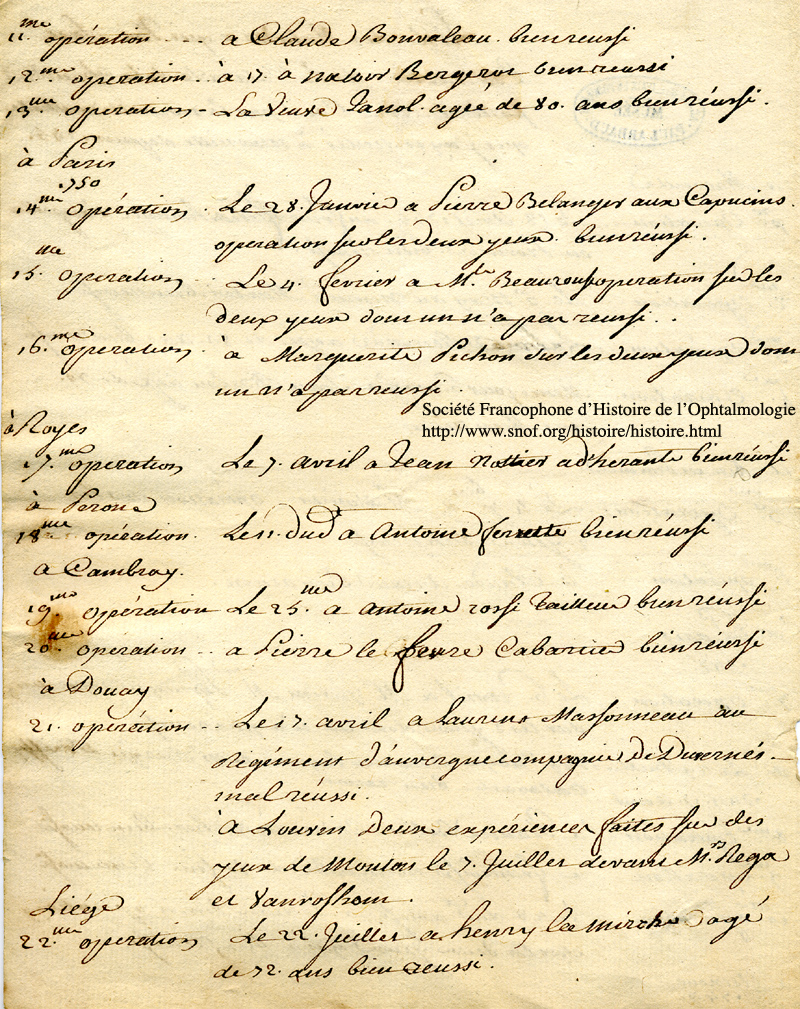 11.me opération - - a Claude Bonvaleau. bien reussi
12.me operation. à 17. à natoir Bergeron bien reussi
13.me operation - La Veuve Janol. agée de 80. ans bien réussi.
à Paris
1750
14.me opération. Le 28. Janvie a Pierre Belanger aux Capucins.
operation sur les deux yeux. bien réussi.
15.me operation Le 4. fevrier a M.lle operation sur les
deux yeux dont un n'a pas reussi..
16.me operation. à Marguerite Pichon sur les deux yeux dont
un n'a pas reussi.
Société Francophone d'Histoire de l'Ophtalmologie
http://www.snof.org/histoire/histoire.html
à Royes
17.me operation Le 7. avril a Jean bien réussi
à Perone
18.me opération. Le 11. dud. a Antoine ferrette bien réussi
a Cambray.
19.me opération Le 25.me a antoine rossi tailleur bien réussi
20.me opération.. a Pierre le fevre Cabartie bien réussi
à Douay
21. opération.. Le 17. avril a Laurent Massonneau au
Regiment d'auvergne compagnie de Duvernés -
mal réussi.
à Louvin Deux expériences faites sur des
yeux de Mouton le 7. Juillet devant M.rs Rega
et Vanrosshom.
Liége
22.me operation Le 22. Juillet a henry la agé
de 72. ans bien reussi.